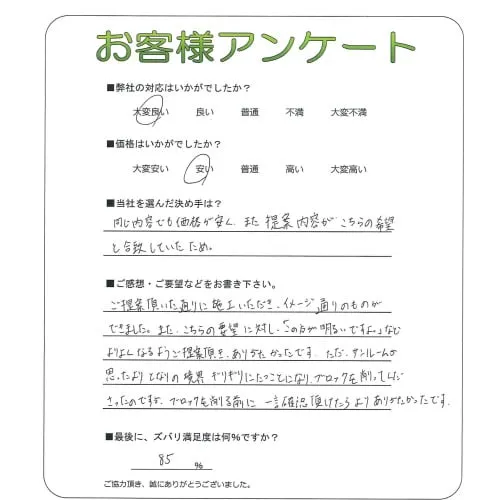 お客様アンケート
■弊社の対応はいかがでしたか？
大変良い 良い 普通 不満 大変不満
■価格はいかがでしたか？
大変安い 安い 普通 高い 大変高い
■当社を選んだ決め手は？
同じ内容でも価格が安く、また提案内容がこちらの希望
と合致していたため。
■ご感想・ご要望などをお書き下さい。
ご提案頂いた通りに施工いただき、イメージ通りのものが
できました。また、こちらの要望に対し、「この方が明るいですよ。」など
よりよくなるようご提案頂き、ありがたかったです。ただ、サンルームが
思ったよりとなりの境界ギリギリにたつことになり、ブロックを削って下
さったのですが、ブロックを削る前に一言確認頂けたらよりありがたかったです。
■最後に、ズバリ満足度は何%ですか？
85 %
ご協力頂き、誠にありがとうございました。